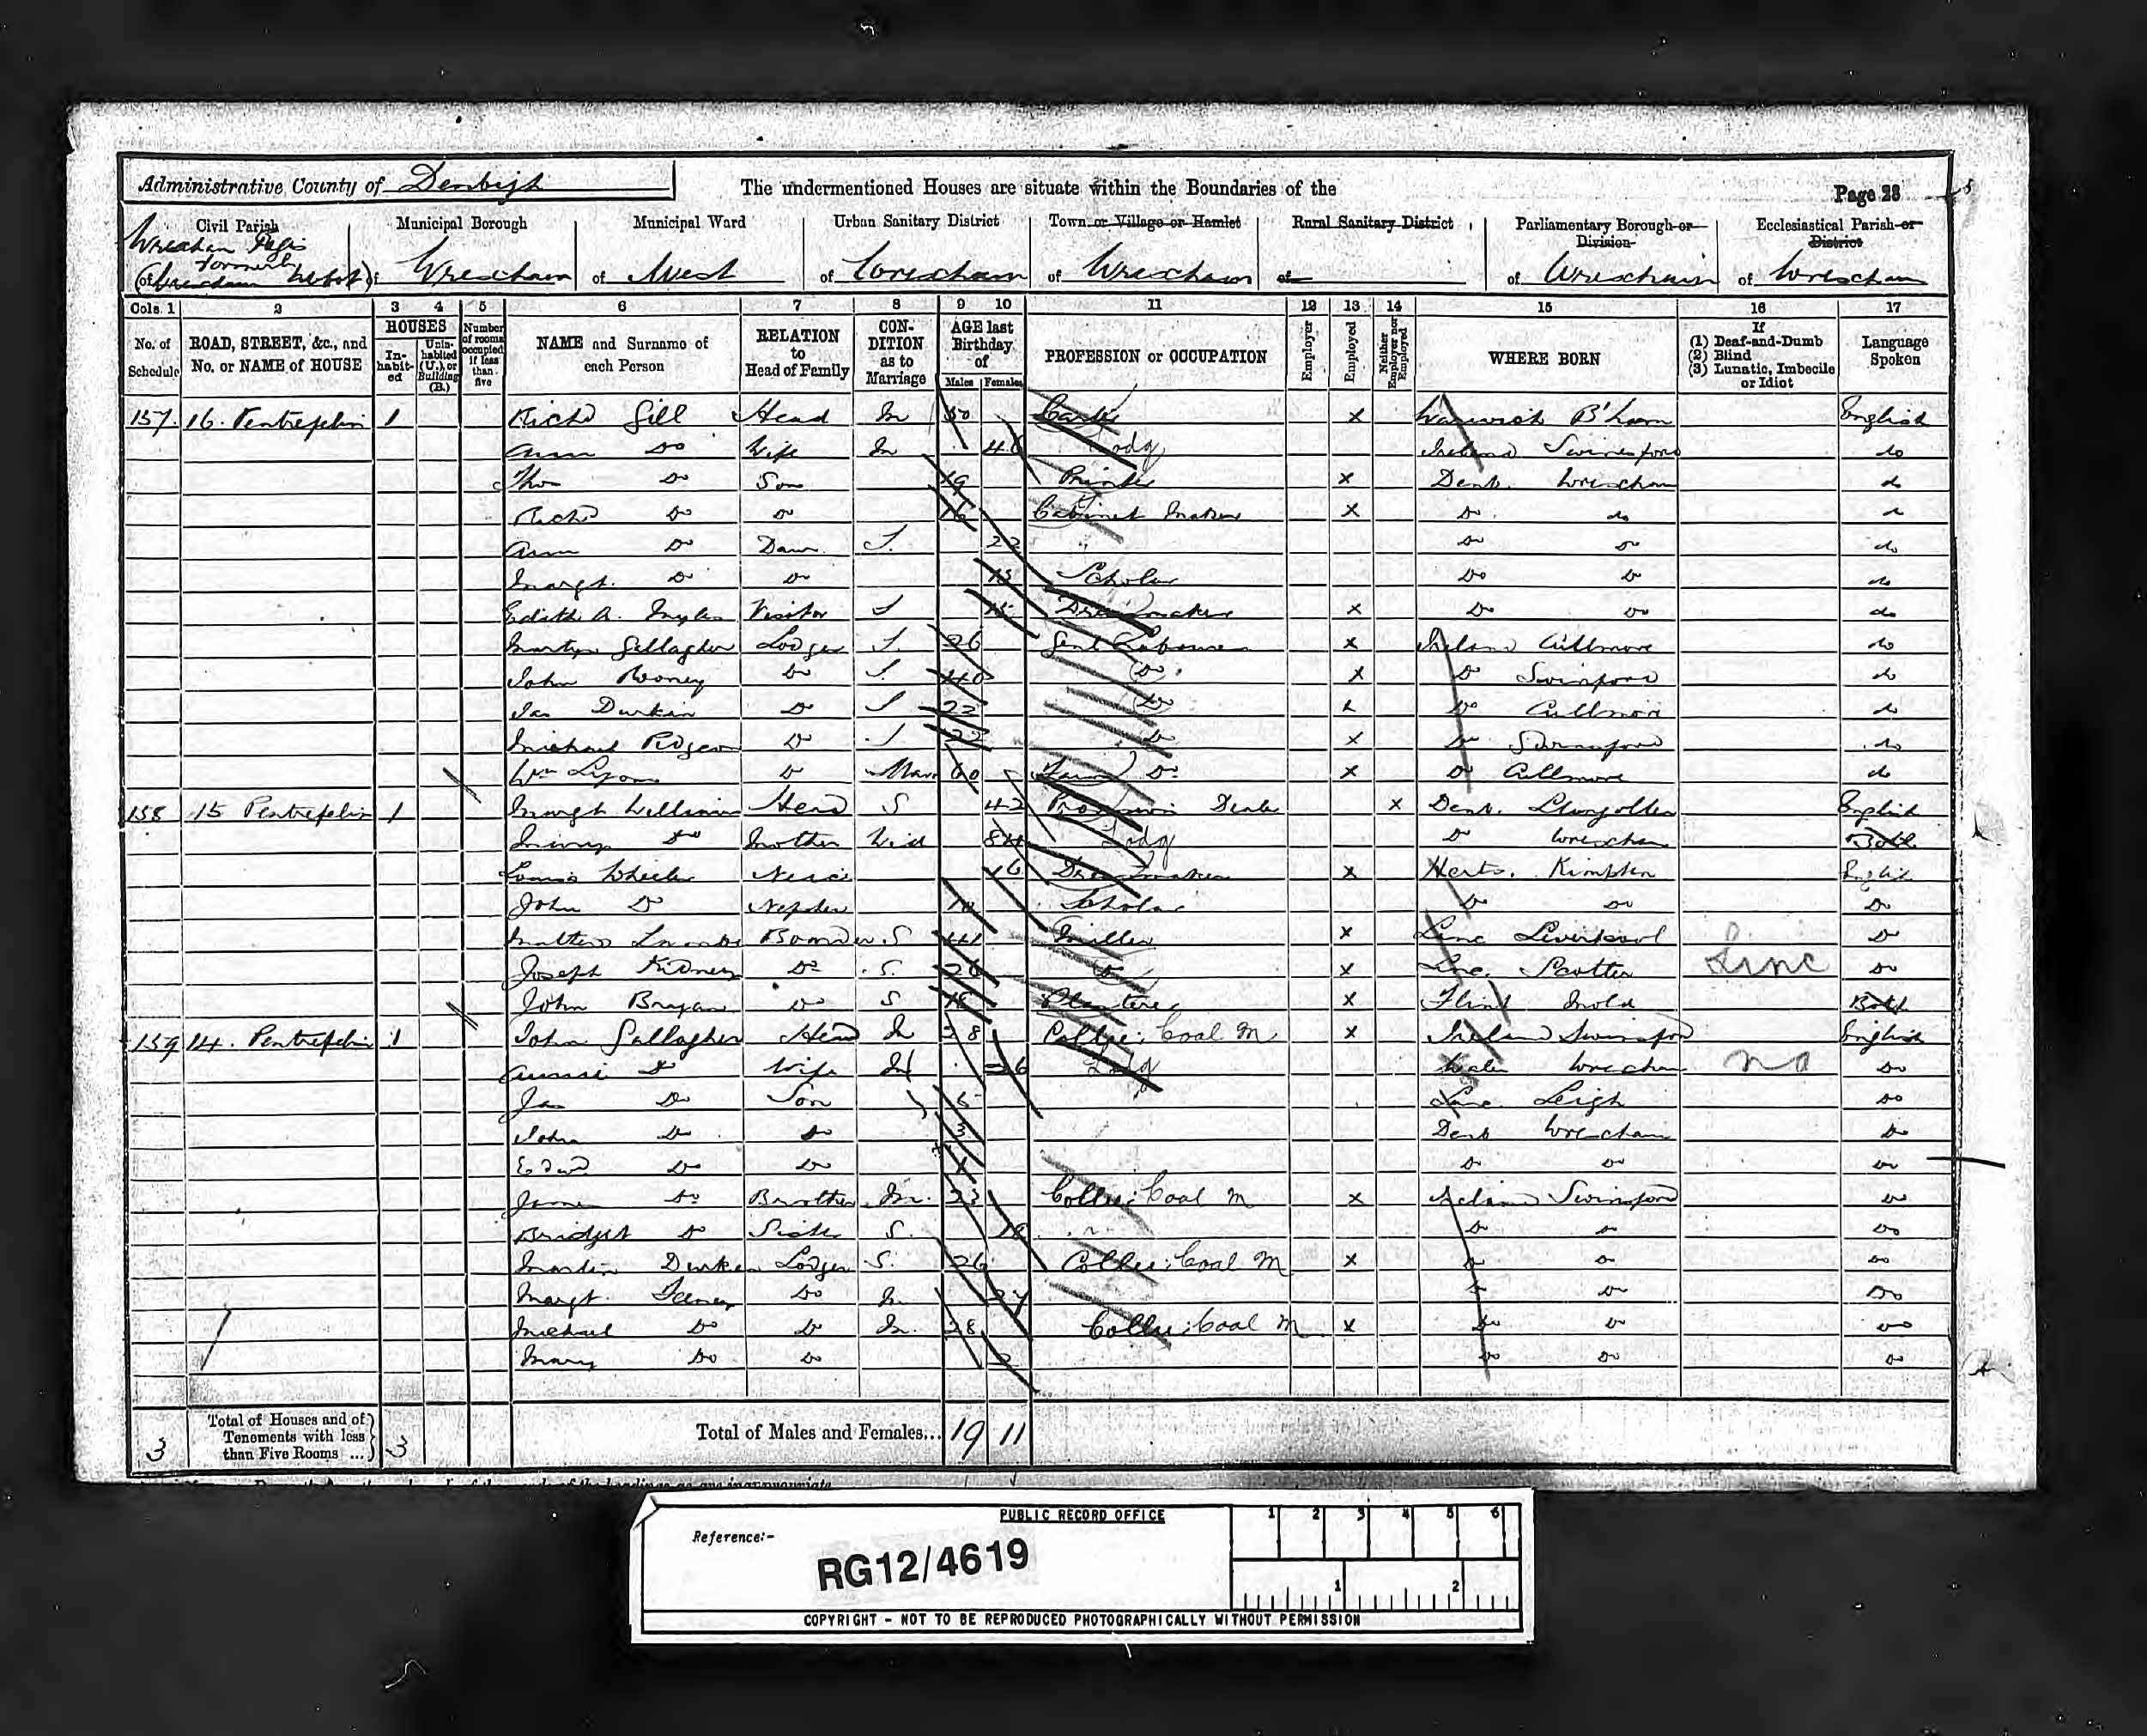 Administrative County of Denbigh
The undermentioned Houses are situate within the Boundaries of the
Page 28
Civil Parish
Municipal Borough
Municipal Ward
Urban Sanitary District
Town or Village or Hamlet
Rural Sanitary District
Parliamentary Borough or Division
Ecclesiastical Parish or District
formerly
of Wrexham
of West
of Wrexham
of Wrexham
of
of Wrexham
of Wrexham
Cols. 1 2 3 4 5 6 7 8 9 10 11 12 13 14 15 16 17
No. of Schedule
ROAD, STREET, &c., and No. or NAME of HOUSE
HOUSES
In-habit-ed
Unin-habited (U.), or Building (B.)
Number of rooms occupied if less than five
NAME and Surname of each Person
RELATION to Head of Family
CON-DITION as to Marriage
AGE last Birthday of
Males Females
PROFESSION or OCCUPATION
Employer
Employed
Neither Employer nor Employed
WHERE BORN
If
(1) Deaf-and-Dumb
(2) Blind
(3) Lunatic, Imbecile or Idiot
Language Spoken
157 16. Pentrefelin 1 Richd Gill Head M 50 x Warwick B'ham English
Ann Do Wife M 46 Ireland Swineford do
Tho Do Son 19 Printer x Denb. Wrexham do
Richd Do Do 16 Cabinet Maker x Do do
Ann Do Daur S. 22 Do Do do
Margt. Do Do 13 Scholar Do Do do
Edith A. Visitor S 15 Dressmaker x Do Do do
Martyn Gallagher Lodger S. 26 Genl Labourer x Ireland Cullmore do
John Rooney Do S. 40 Do x Do Swinford do
Jas Durkin Do S 22 Do x Do Cullmore do
Michael Do S 22 Do x Do do
Wm Lyons Do Marr 60 Farm Do x Do Cullmore do
158 15 Pentrefelin 1 Margt Williams Head S 42 Provision Dealer x Denb. Llangollen English
Do Mother Wid 84 Do Wrexham Both
Wheeler Neice 16 Dressmaker x Herts. Kimpton English
John Do Nephew Scholar Do Do Do
Boarder S Miller x Liverpool Do
Joseph Kidney Do S. 26 Do x Linc. Scotter Linc Do
John Bryan Do S 18 x Flint Mold Both
159 14. Pentrefelin 1 John Gallagher Head M 28 Collier: Coal M x Ireland Swinford English
Annie Do Wife M 26 Wales Wrexham Do
Jas Do Son 5 Lanc Leigh Do
John Do Do 3 Denb Wrexham Do
Edwd Do Do 1 Do Do Do
James Do Brother M. 23 Collier: Coal M x Ireland Swinford Do
Bridget Do Sister S. 18 Do Do Do
Martin Durken Lodger S. 26 Collier: Coal M x Do Do Do
Margt. Feeney Do M 27 Do Do Do
Michael Do Do M. 28 Collier: Coal M x Do Do Do
Mary Do Do 2 Do Do Do
3 Total of Houses and of Tenements with less than Five Rooms ... 3 Total of Males and Females... 19 11
PUBLIC RECORD OFFICE
1 2 3 4 5 6
Reference:-
RG12/4619
1 2
COPYRIGHT - NOT TO BE REPRODUCED PHOTOGRAPHICALLY WITHOUT PERMISSION